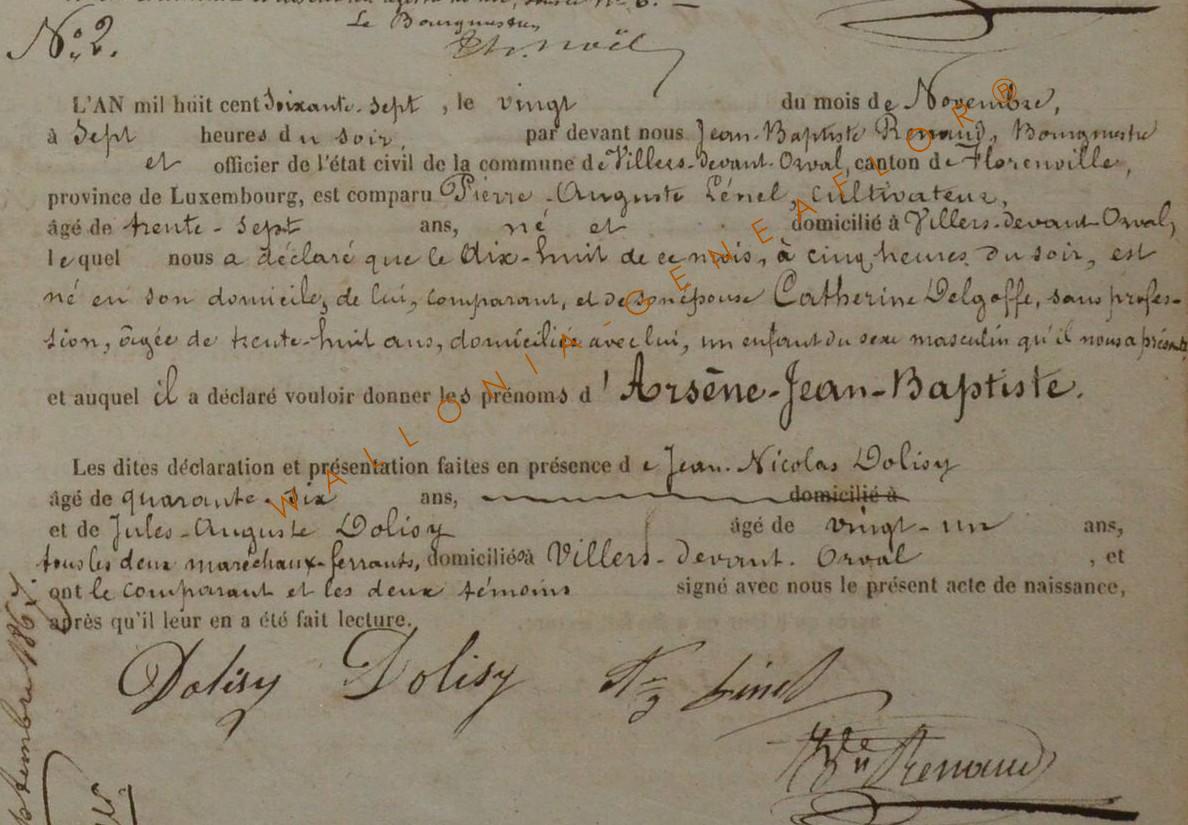 Le Bourgmestre,
N.º 2.
L'AN mil huit cent soixante-sept , le vingt du mois de Novembre,
à sept heures du soir, par devant nous Jean-Baptiste Renaud, Bourgmestre
et officier de l'état civil de la commune de Villers-devant-Orval, canton de Florenville,
province de Luxembourg, est comparu Pierre-Auguste Lénel, cultivateur,
âgé de trente-sept ans, né et domicilié à Villers-devant-Orval,
lequel nous a déclaré que le dix-huit de ce mois, à cinq heures du soir, est
né en son domicile, de lui, comparant, et de son épouse Catherine Delgoffe, sans profes-
sion, âgée de trente-huit ans, domiciliée avec lui, un enfant du sexe masculin qu'il nous a présenté
et auquel il a déclaré vouloir donner les prénoms d'Arsène-Jean-Baptiste.
Les dites déclaration et présentation faites en présence de Jean-Nicolas Dolisy
âgé de quarante-six ans, domicilié à
et de Jules-Auguste Dolisy âgé de vingt-un ans,
tous les deux maréchaux-ferrants, domiciliés à Villers-devant-Orval , et
ont le comparant et les deux témoins signé avec nous le présent acte de naissance,
après qu'il leur en a été fait lecture.
Dolisy Dolisy
Renaud
WALLONIA-GENEAFLOR®